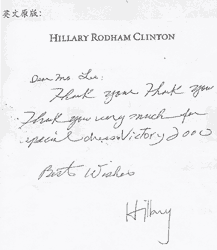 英文原版:
HILLARY RODHAM CLINTON
Dear Ms. Lee:
Thank you Thank you
Thank you very much for
special dress Victory 2000
Best Wishes
Hillary